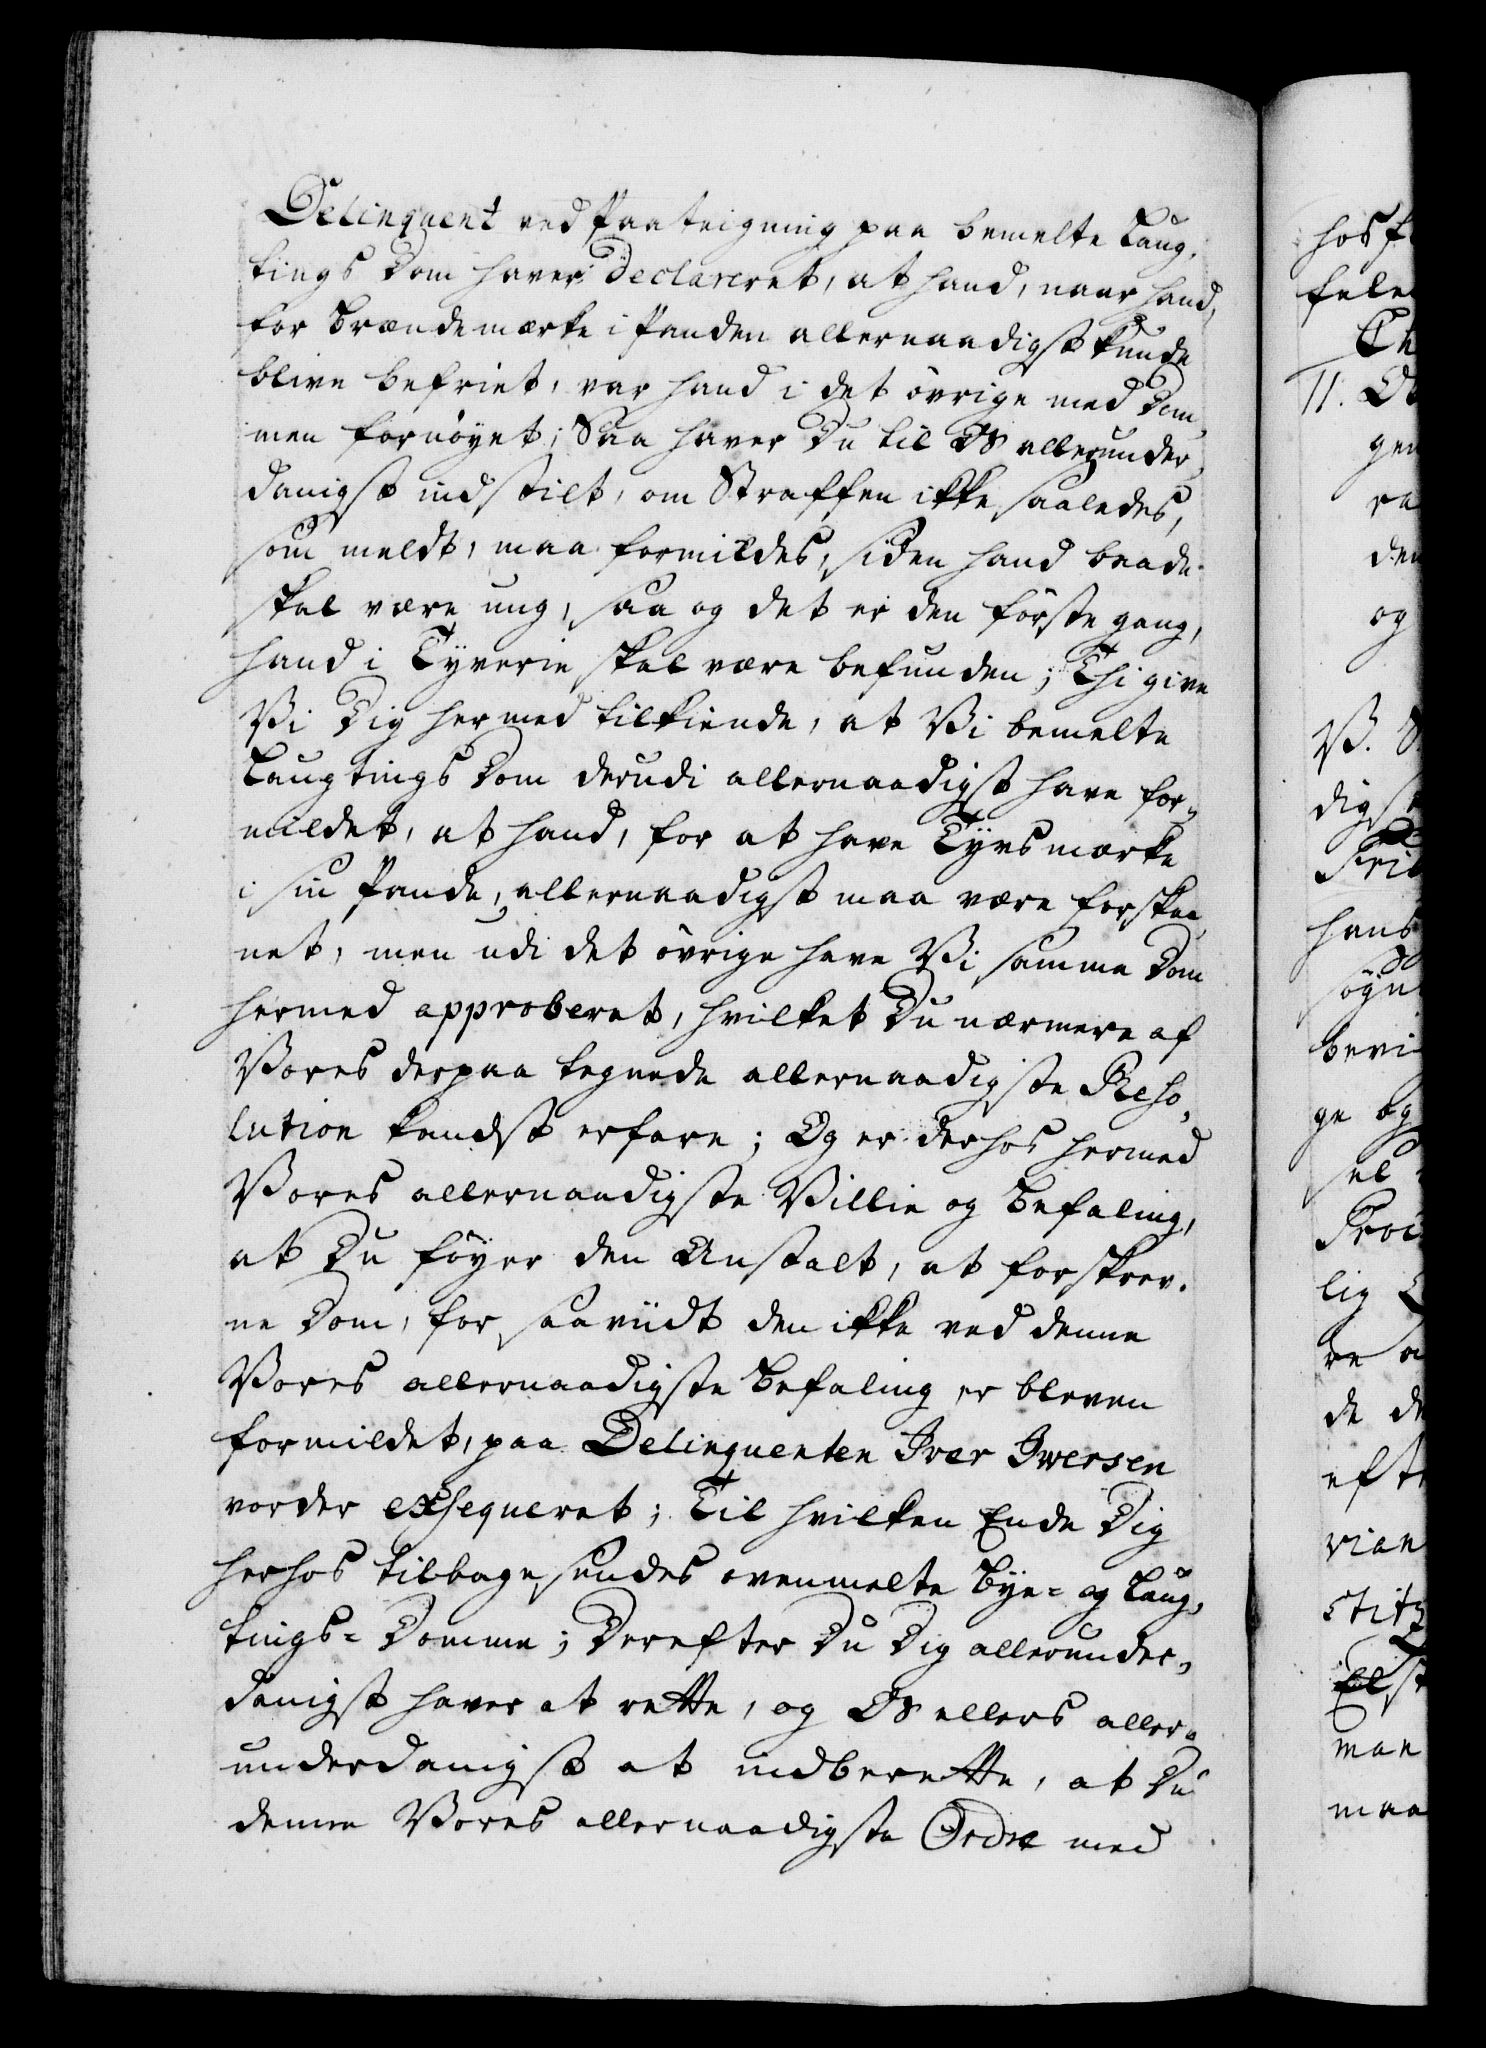 Delinquent ved Paateigning paa bemelte Laug,
tings Dom haver Declareret, at hand, naar hand,
for Brændemærke i Panden allernaadigst kunde
blive befriet, var hand i det övrige med Dom,
men fornöyet; Saa haver Du til OS allerunder,
danigst indstilt, om Straffen ikke saaledes,
som meldt, maa formildes, siden hand baade
skal være ung, saa og det er den förste gang,
hand i Tyverie skal være befunden; Thi give
Vi Dig hermed tilkiende, at Vi bemelte
Laugtings Dom derudi allernaadigst have for,
mildet, at hand, for at have Tyvsmærke
i sin Pande, allernaadigst maa være forskaa,
net, men udi det övrige have Vi samme Dom
hermed approberet, hvilket Du nærmere af
Vores derpaa tegnede allernaadigste Reso,
lution kandst erfare; Og er derhos hermed
Vores allernaadigste Villie og Befaling,
at Du föyer den Anstalt, at forskrev.
ne Dom, for saaviidt den ikke ved denne
Vores allernaadigste Befaling er bleven
formildet, paa Delinquenten Iver Iversen
vorder exseqveret; Til hvilken Ende Dig
herhos tilbagesendes ovenmelte Bye= og Laug,
tings= Domme; Derefter Du Dig allerunder,
danigst haver at rette, og OS ellers aller,
underdanigst at indberette, at Du
denne Vores allernaadigste Ordre med
hos
11.
gen
ra
den
og
V.
hans
bevi
ge og
sel
lig
re
de de
efte
man
maa